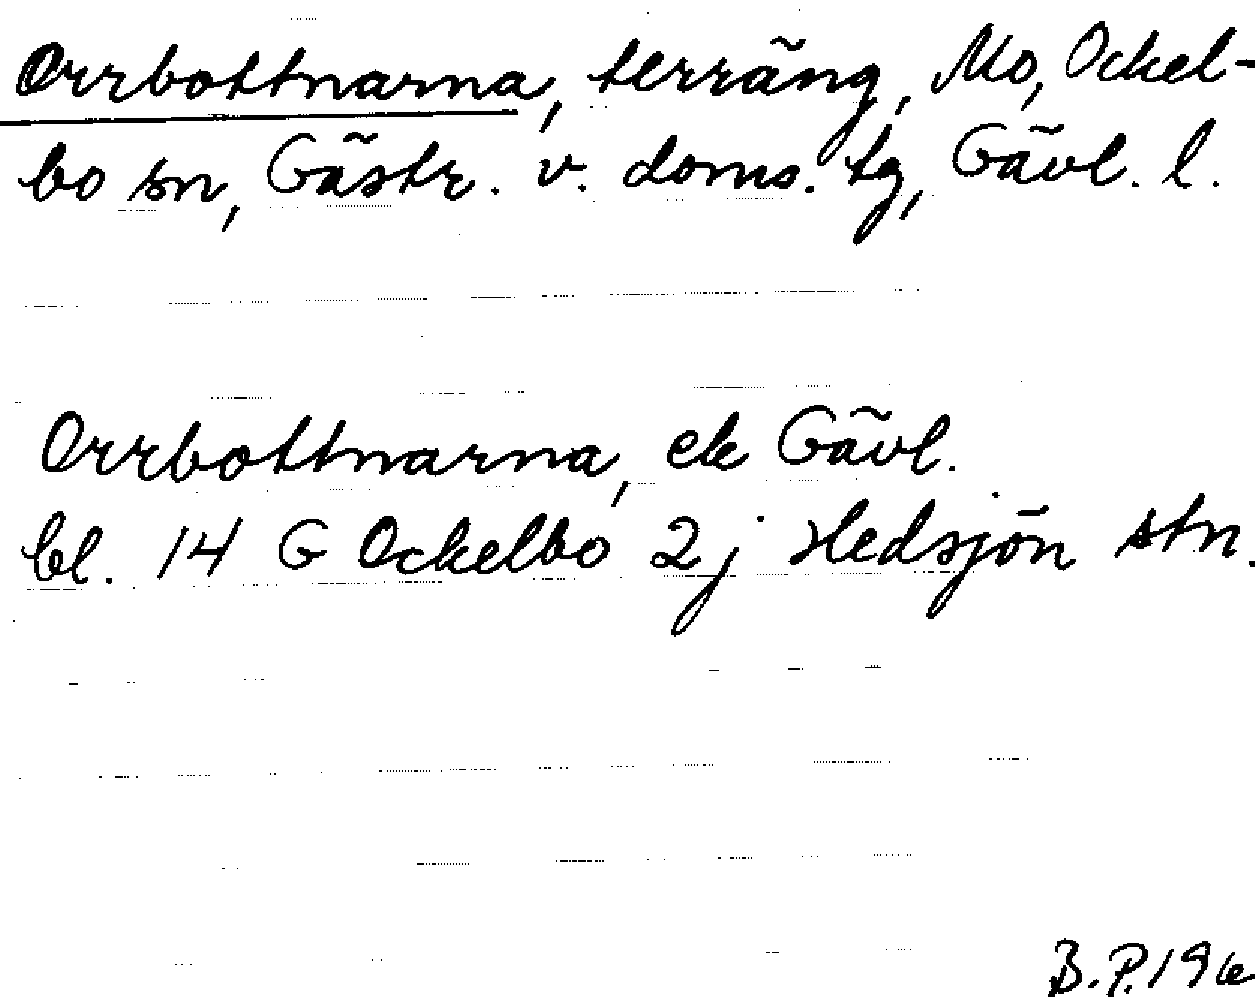 Orrbottnarna, terräng, Mo, Ockel-
bo sn, Gästr. v. doms. tg, Gävl. l.
Orrbottnarna, ek Gävl.
bl. 14 G Ockelbo 2j Hedsjön stn.
B.P.196